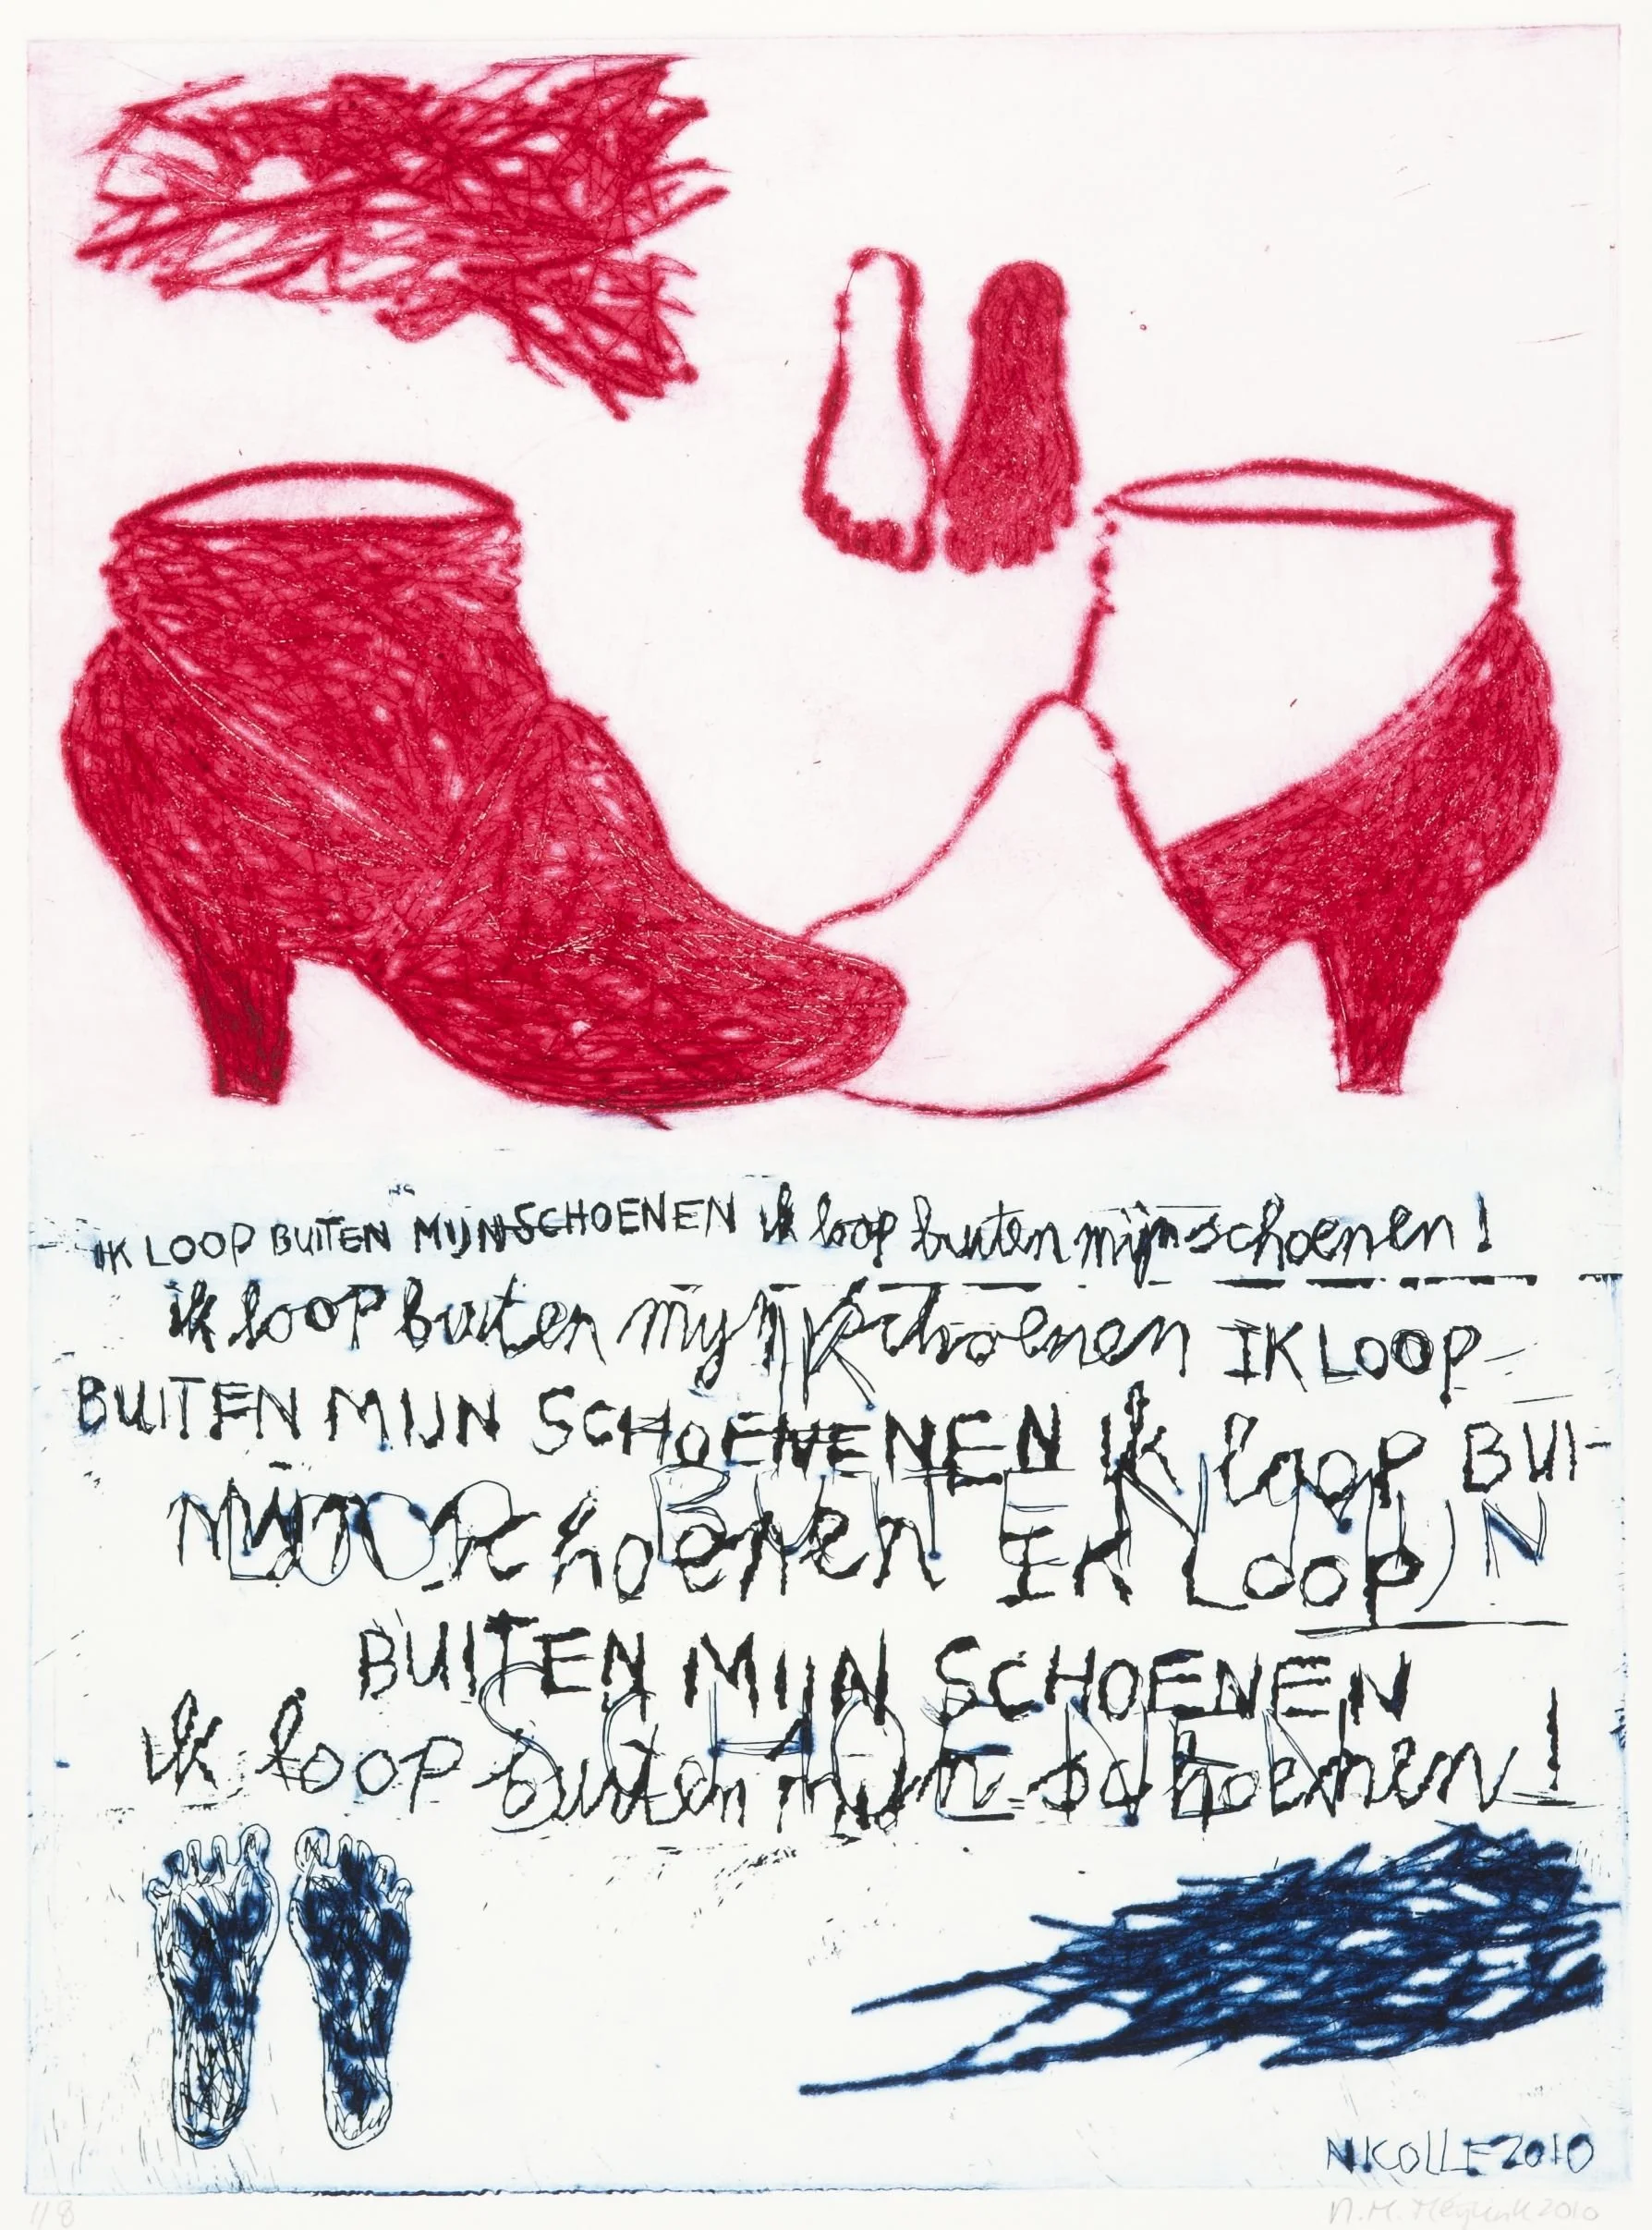 IK LOOP BUITEN MIJN SCHOENEN ik loop buiten mijn schoenen!
ik loop buiten mijn schoenen IK LOOP
BUITEN MIJN SCHOENENEN ik loop BUI-
mijn schoenen IK Loop
BUITEN MIJN SCHOENEN
ik loop buiten mijn schoenen!
NICOLLE 2010
1/8 N.M. 2010